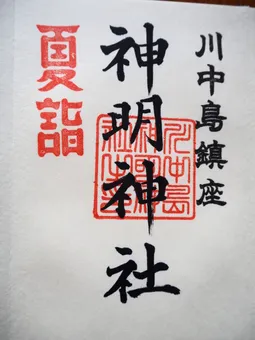 川中島鎮座
神明神社
夏詣